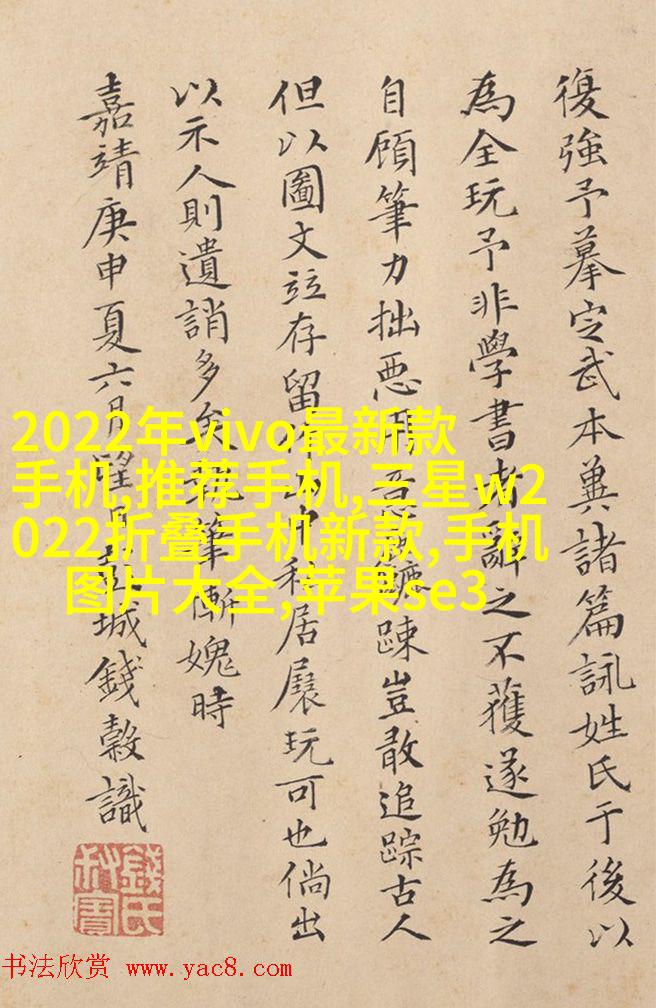 復強予摹定武本兼諸篇詠姓氏于後以
為全玩予非學書者辭之不獲遂勉為之
自顧筆力拙惡用意踈豈敢追踪古人
但以圖文竝存留私居展玩可也倘出
以示人則遺誚多矣執筆慚媿時
嘉靖庚申夏六月望日彭城錢穀識
錢氏
2022年vivo最新款
手机,推荐手机,三星w2
022折叠手机新款,手机
图片大全,苹果se3
书法欣赏 www.yac8.com